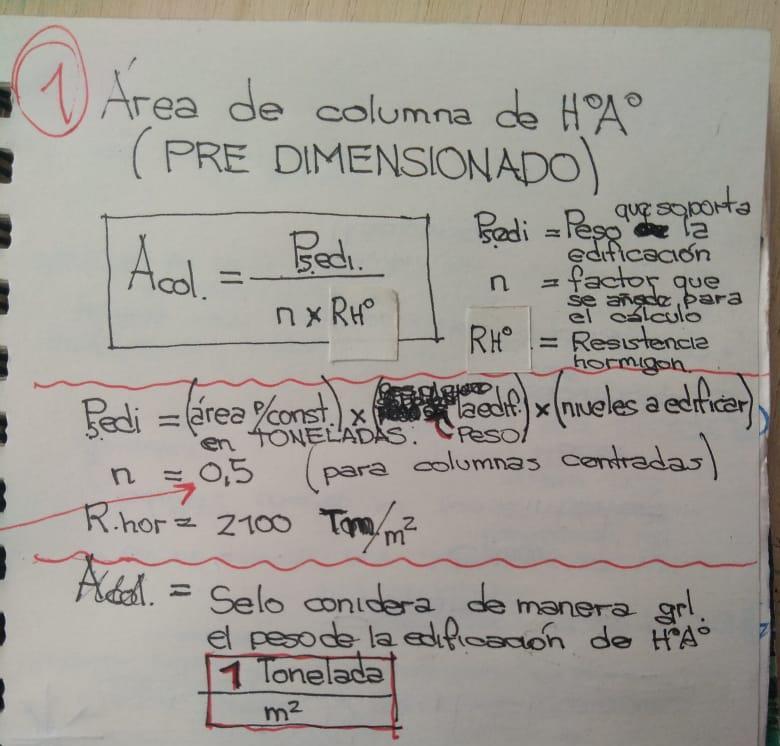 1 Área de columna de HºAº
(PRE DIMENSIONADO)
Acol. = Psedi. / n x RHº
Psedi = Peso que soporta la edificación
n = factor que se añade para el cálculo
RHº = Resistencia hormigon.
Psedi = (área p/const.) x (Peso la edif.) x (niveles a edificar)
en TONELADAS.
n = 0,5 (para columnas centradas)
R.hor = 2100 Ton/m²
Acol. = Selo conidera de manera grl.
el peso de la edificación de HºAº
1 Tonelada
m²